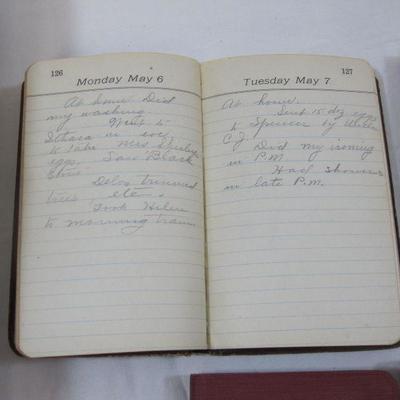 126
Monday May 6
At home. Did
my washing.
Went to
Ithaca in
to take Mrs
eggs. Saw Black
Delos trimmed
trees, etc.
Took Helen
to morning train
127
Tuesday May 7
At home.
Sent 15 dz eggs
to Spencer by
C.J. Did my ironing
in P.M.
Had showers
in late P.M.